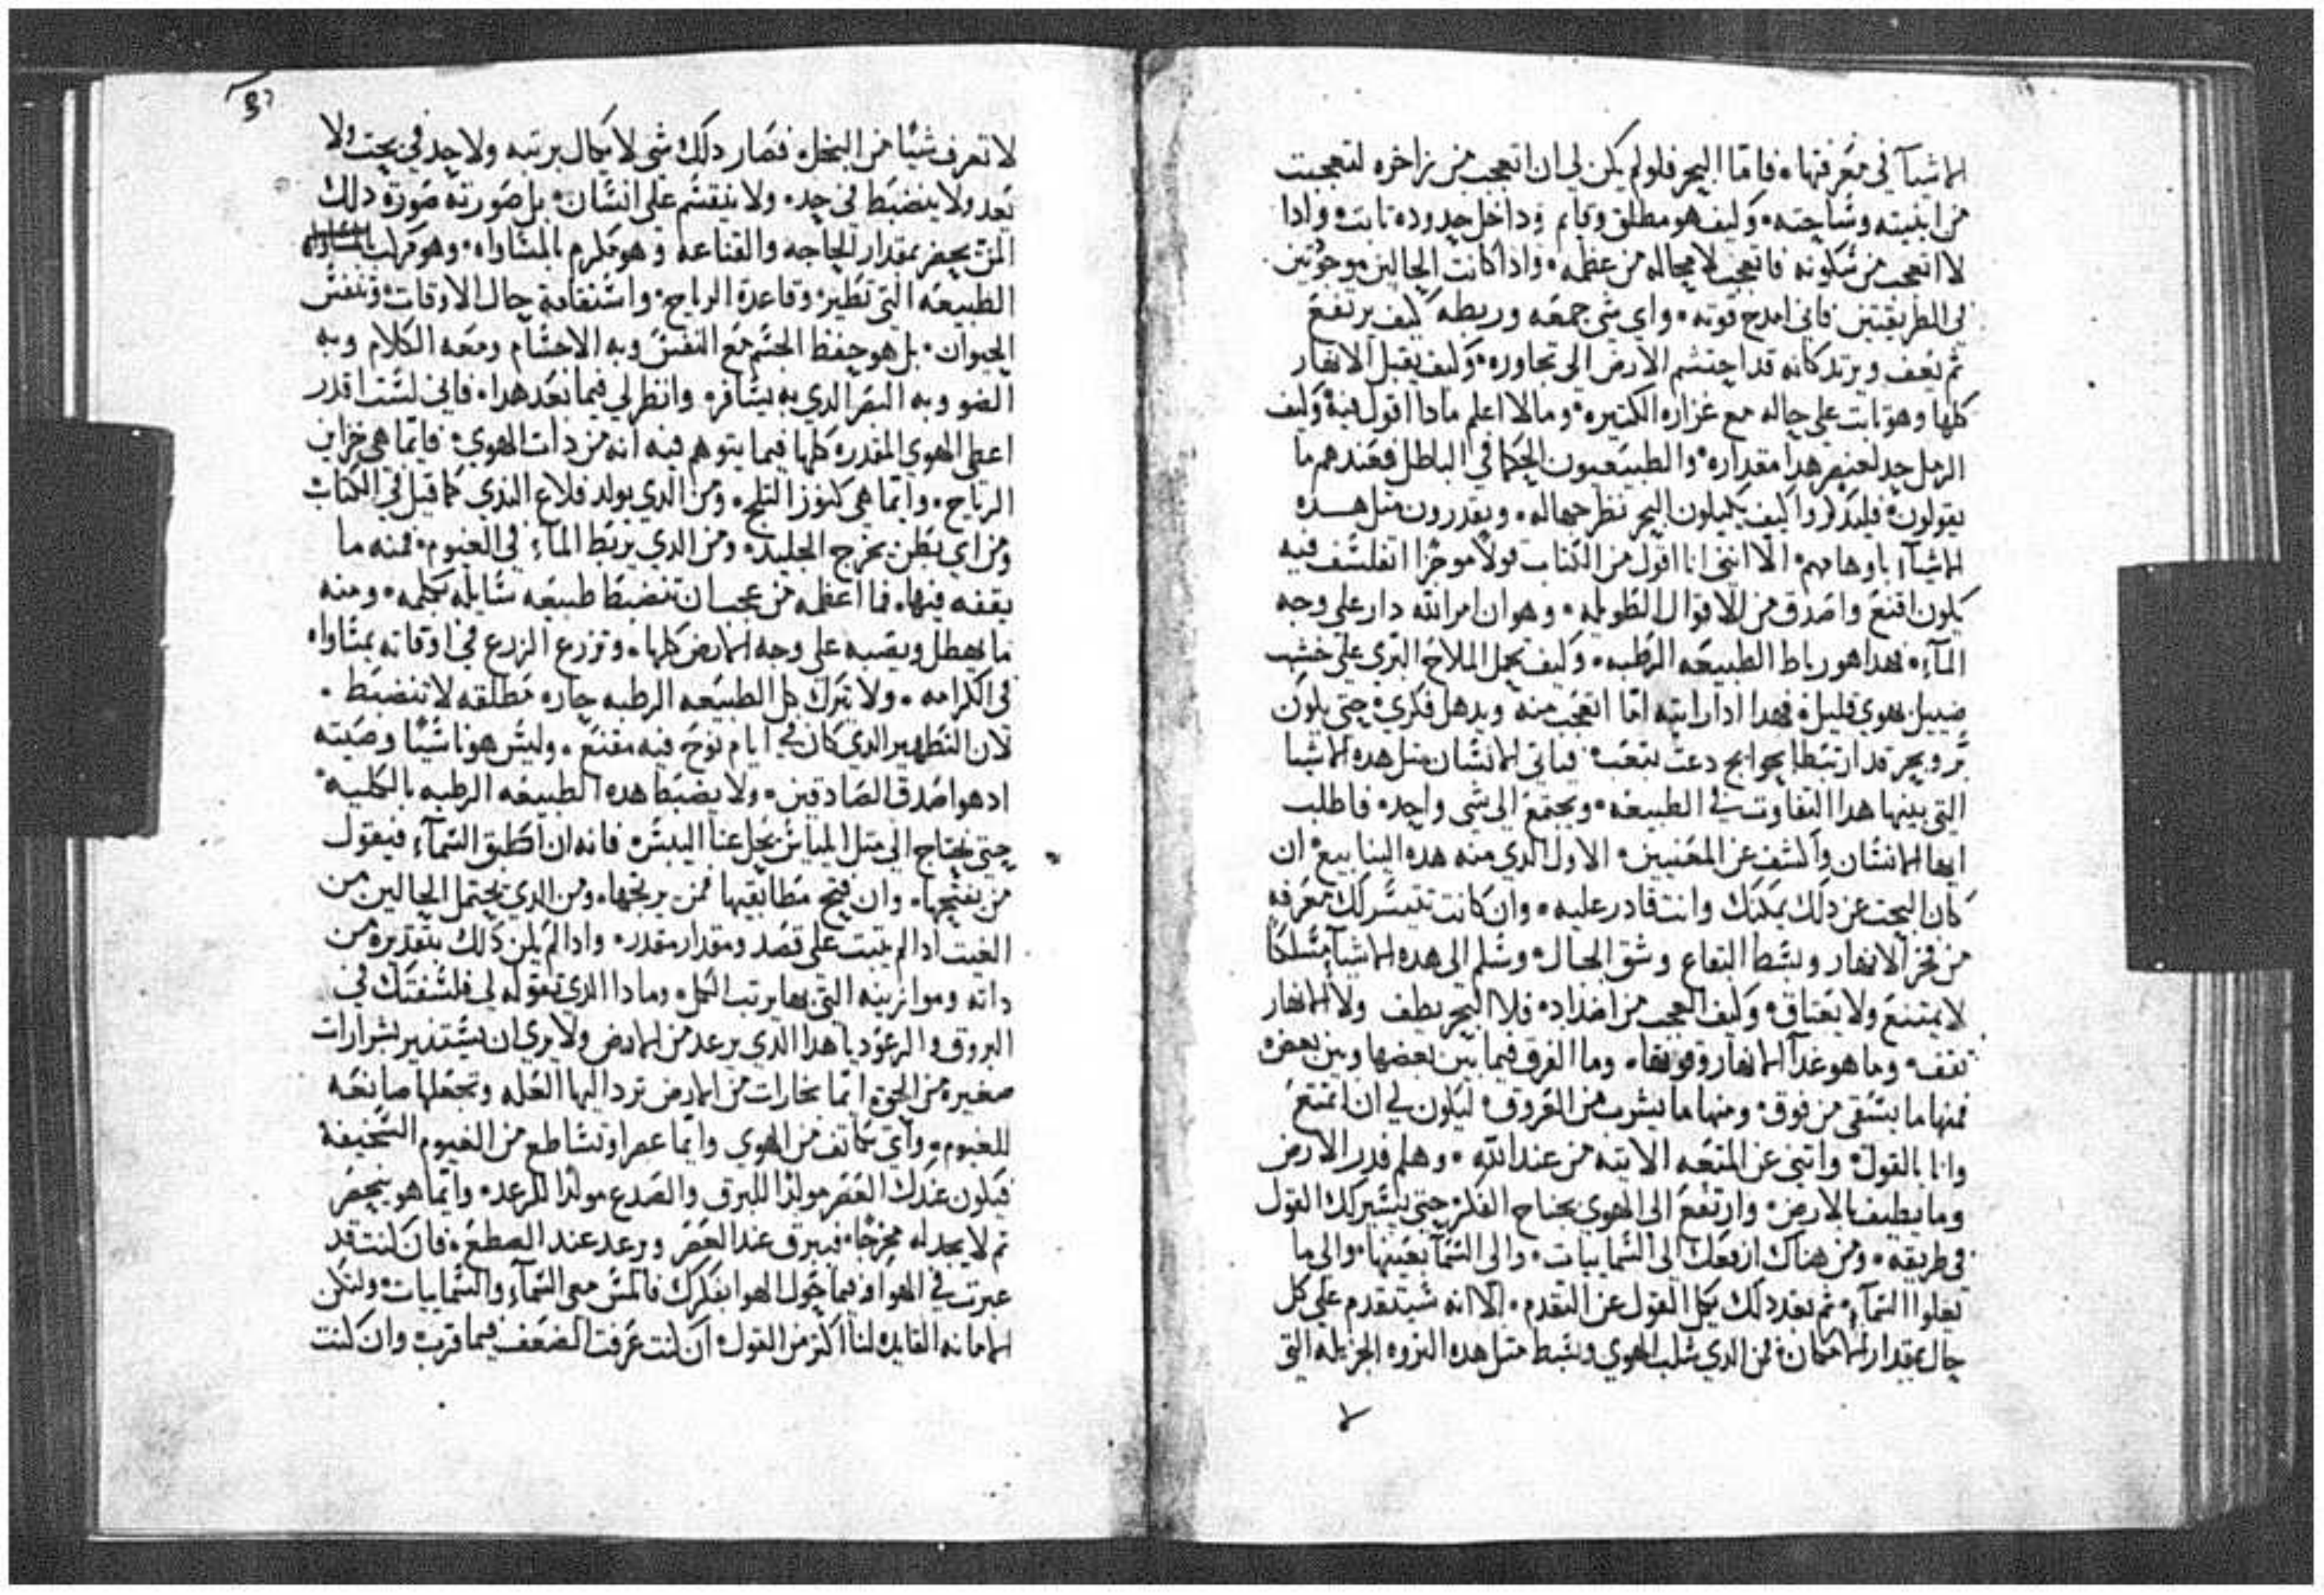 الاشيآ في معرفتها. فاما البحر فلو لم يكن لي ان اتعجب من زاخره لتعجبت
من ابنيته وساحته. وكيف هو مطلق وقايم داخل حدوده ثابت واذا
لا اتعجب من سكونه فاتعجب لا محاله من عظمه. واذا كانت الحالين موجوتين
في الطريقتين فاني امدح قوته. واي شي جمعه وربطه كيف يرتفع
ثم يقف ويرتد كانه قد احتشم الارض الي تجاوره. وكيف يقبل الانهار
كلها وهو ثابت علي حاله مع غزاره الكثيره وما لا اعلم ماذا اقول فيه وكيف
الرمل حد لعنصر هذا مقداره. والطبيعيون الحكما في الباطل فعندهم ما
يقولون فليذكروا كيف يكيلون البحر نظر جهاله. ويقدرون مثل هذه
الاشيآ باوهامهم. الا انني انا اقول من الكتاب قولا موجزا اتفلسف فيه
يكون اقنع واصدق من الاقوال الطويله. وهو ان امر الله دار علي وجه
المآء. فهذا هو رباط الطبيعه الرطبه. وكيف يحمل الملاح البري علي خشب
ضييل بهوي قليل. فهذا اذا رايته اما اتعجب منه ويدهل فكري حتي يكون
بر وبحر قد ارتبطا بحوايج دعت بتعب. فياتي الانسان مثل هذه الاشيا
التي بينها هذا التفاوت في الطبيعه. ويجتمع الي شي واحد. فاطلب
ايها الانسان واكشف عن المعنيين. الاول الذي منه هذه الينابيع ان
كان البحث عن ذلك يمكنك وانت قادر عليه. وان كانت تتيسر لك معرفه
من فجر الانهار وبسط البقاع وشق الجبال وسلم الي هذه الاشيآ مسلكا
لا يمتنع ولا يعتاق. وكيف العجب من اضداد. فلا البحر يطف ولا الانهار
تقف. وما هو غدآ الانهار وفوتها. وما الفرق فيما بين بعضها وبين بعض
فمنها ما يستقي من فوق. ومنها ما يشرب من العروق. ليكون لي ان اتمتع
وانا بالقول. واتني عن المتعه الاتيه من عند الله. وهلم فدر الارض
وما يطيف بالارض. وارتفع الي الهوي بجناح الفكر حتي يسير لك القول
في طريقه. ومن هناك ارفعك الي السماييات. والي السمآ بعينها والي ما
يعلوا السمآء. ثم بعد ذلك يكل القول عن التقدم. الا انه سيتقدم علي كل
حال بمقدار الامكان. فمن الذي سكب الهوي وبسط مثل هذه الثروه الجزيله التي
لا
لا تعرف شيا من البخل. فصار ذلك شي لا يكال برتبه ولا يحد في بحت ولا
بعد ولا ينضبط في حد. ولا ينقسم علي انسان. بل صورته صورة ذلك
المن يحضر بمقدار الحاجه والقناعه وهو مكرم بالمساواه. وهو مركب
الطبيعه التي تطير. وقاعدة الرياح. واستقامة حال الاوقات. وتنفس
الحيوان. بل هو حفظ الجسم مع النفس وبه الاحسام ومعه الكلام وبه
الضو وبه البصر الذي به يسافر. وانظر لي فيما بعد هذا. فاني لست اقدر
اعطي الهوي المقدره كلها فيما يتوهم فيه انه من ذات الهوي. فايما هي خزاين
الرياح. وايما هي كنوز الثلج. ومن الذي يولد قلاع الندي كما قيل في الكتاب
ومن اي بطن يخرج الجليد. ومن الذي يربط المآء في الغيوم. فمنه ما
يقفه فيها. فما اعظمه من عجب ان تنضبط طبيعه سايله بكلمه. ومنه
ما يهطل ويصبه علي وجه الارض كلها. وتزرع الزرع في اوقاته بمساواه
في الكرامه. ولا تترك كل الطبيعه الرطبه جاره مطلقه لا تنضبط.
لان التطهير الذي كان في ايام نوح فيه مقنع. وليس هو ناسيا وصيته
اذ هو اصدق الصادقين. ولا يضبط هذه الطبيعه الرطبه بالكليه
حتي نحتاج الي مثل الياس يحل عنا اليبس. فانه ان اطبق السمآء فيقول
من يفتحها. وان فتح مطابقيها فمن يرتجها. ومن الذي يحتمل الحالين من
الغيث اذا لم يتبت علي قصد ومقدار مقدر. واذا لم يكن ذلك بتقديره من
ذاته وموازينه التي بها يرتب الكل. وماذا الذي تقوله لي فلسفتك في
البروق والرعود يا هذا الذي يرعد من الارض ولا يري ان يستقدير بشرارات
صغيره من الحق. ايما بخارات من الارض ترد اليها العله وتجعلها صانعه
للغيوم. واي تكاتف من الهوي وايما عصر او تساطع من الغيوم السخيفه
فيكون عندك العصر مولدا للبرق والصدع مولدا للرعد. وايما هو ينحصر
ثم لا يجد له مخرجا. فيبرق عند العصر ويرعد عند الصطع. فان كنت قد
عبرت في الهوا وفيما حول الهوا بفكرك فالمس معي السمآء والسماييات. ولتكن
الامانه القايده لنا اكثر من القول. ان كنت عرفت الضعف فيما قرب وان كنت